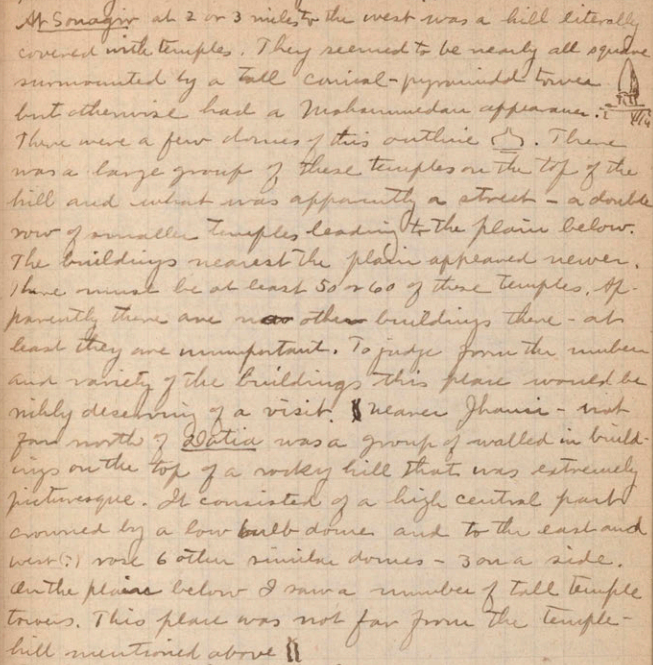 At Sonagir at 2 or 3 miles to the west was a hill literally
covered with temples. They seemed to be nearly all square
surmounted by a tall conical-pyramidal tower
but otherwise had a Mohammedan appearance.
There were a few domes of this outline . There
was a large group of these temples on the top of the
hill and what was apparently a street - a double
row of smaller temples leading to the plain below.
The buildings nearest the plain appeared newer.
There must be at least 50 or 60 of these temples. Ap-
parently there are no other buildings there - at
least they are unimportant. To judge from the number
and variety of the buildings this place would be
richly deserving of a visit. nearer Jhansi - not
far north of Datia was a group of walled in build-
ings on the top of a rocky hill that was extremely
picturesque. It consisted of a high central part
crowned by a low bulb dome and to the east and
west (?) rose 6 other similar domes - 3 on a side.
On the plain below I saw a number of tall temple
towers. This place was not far from the temple-
hill mentioned above